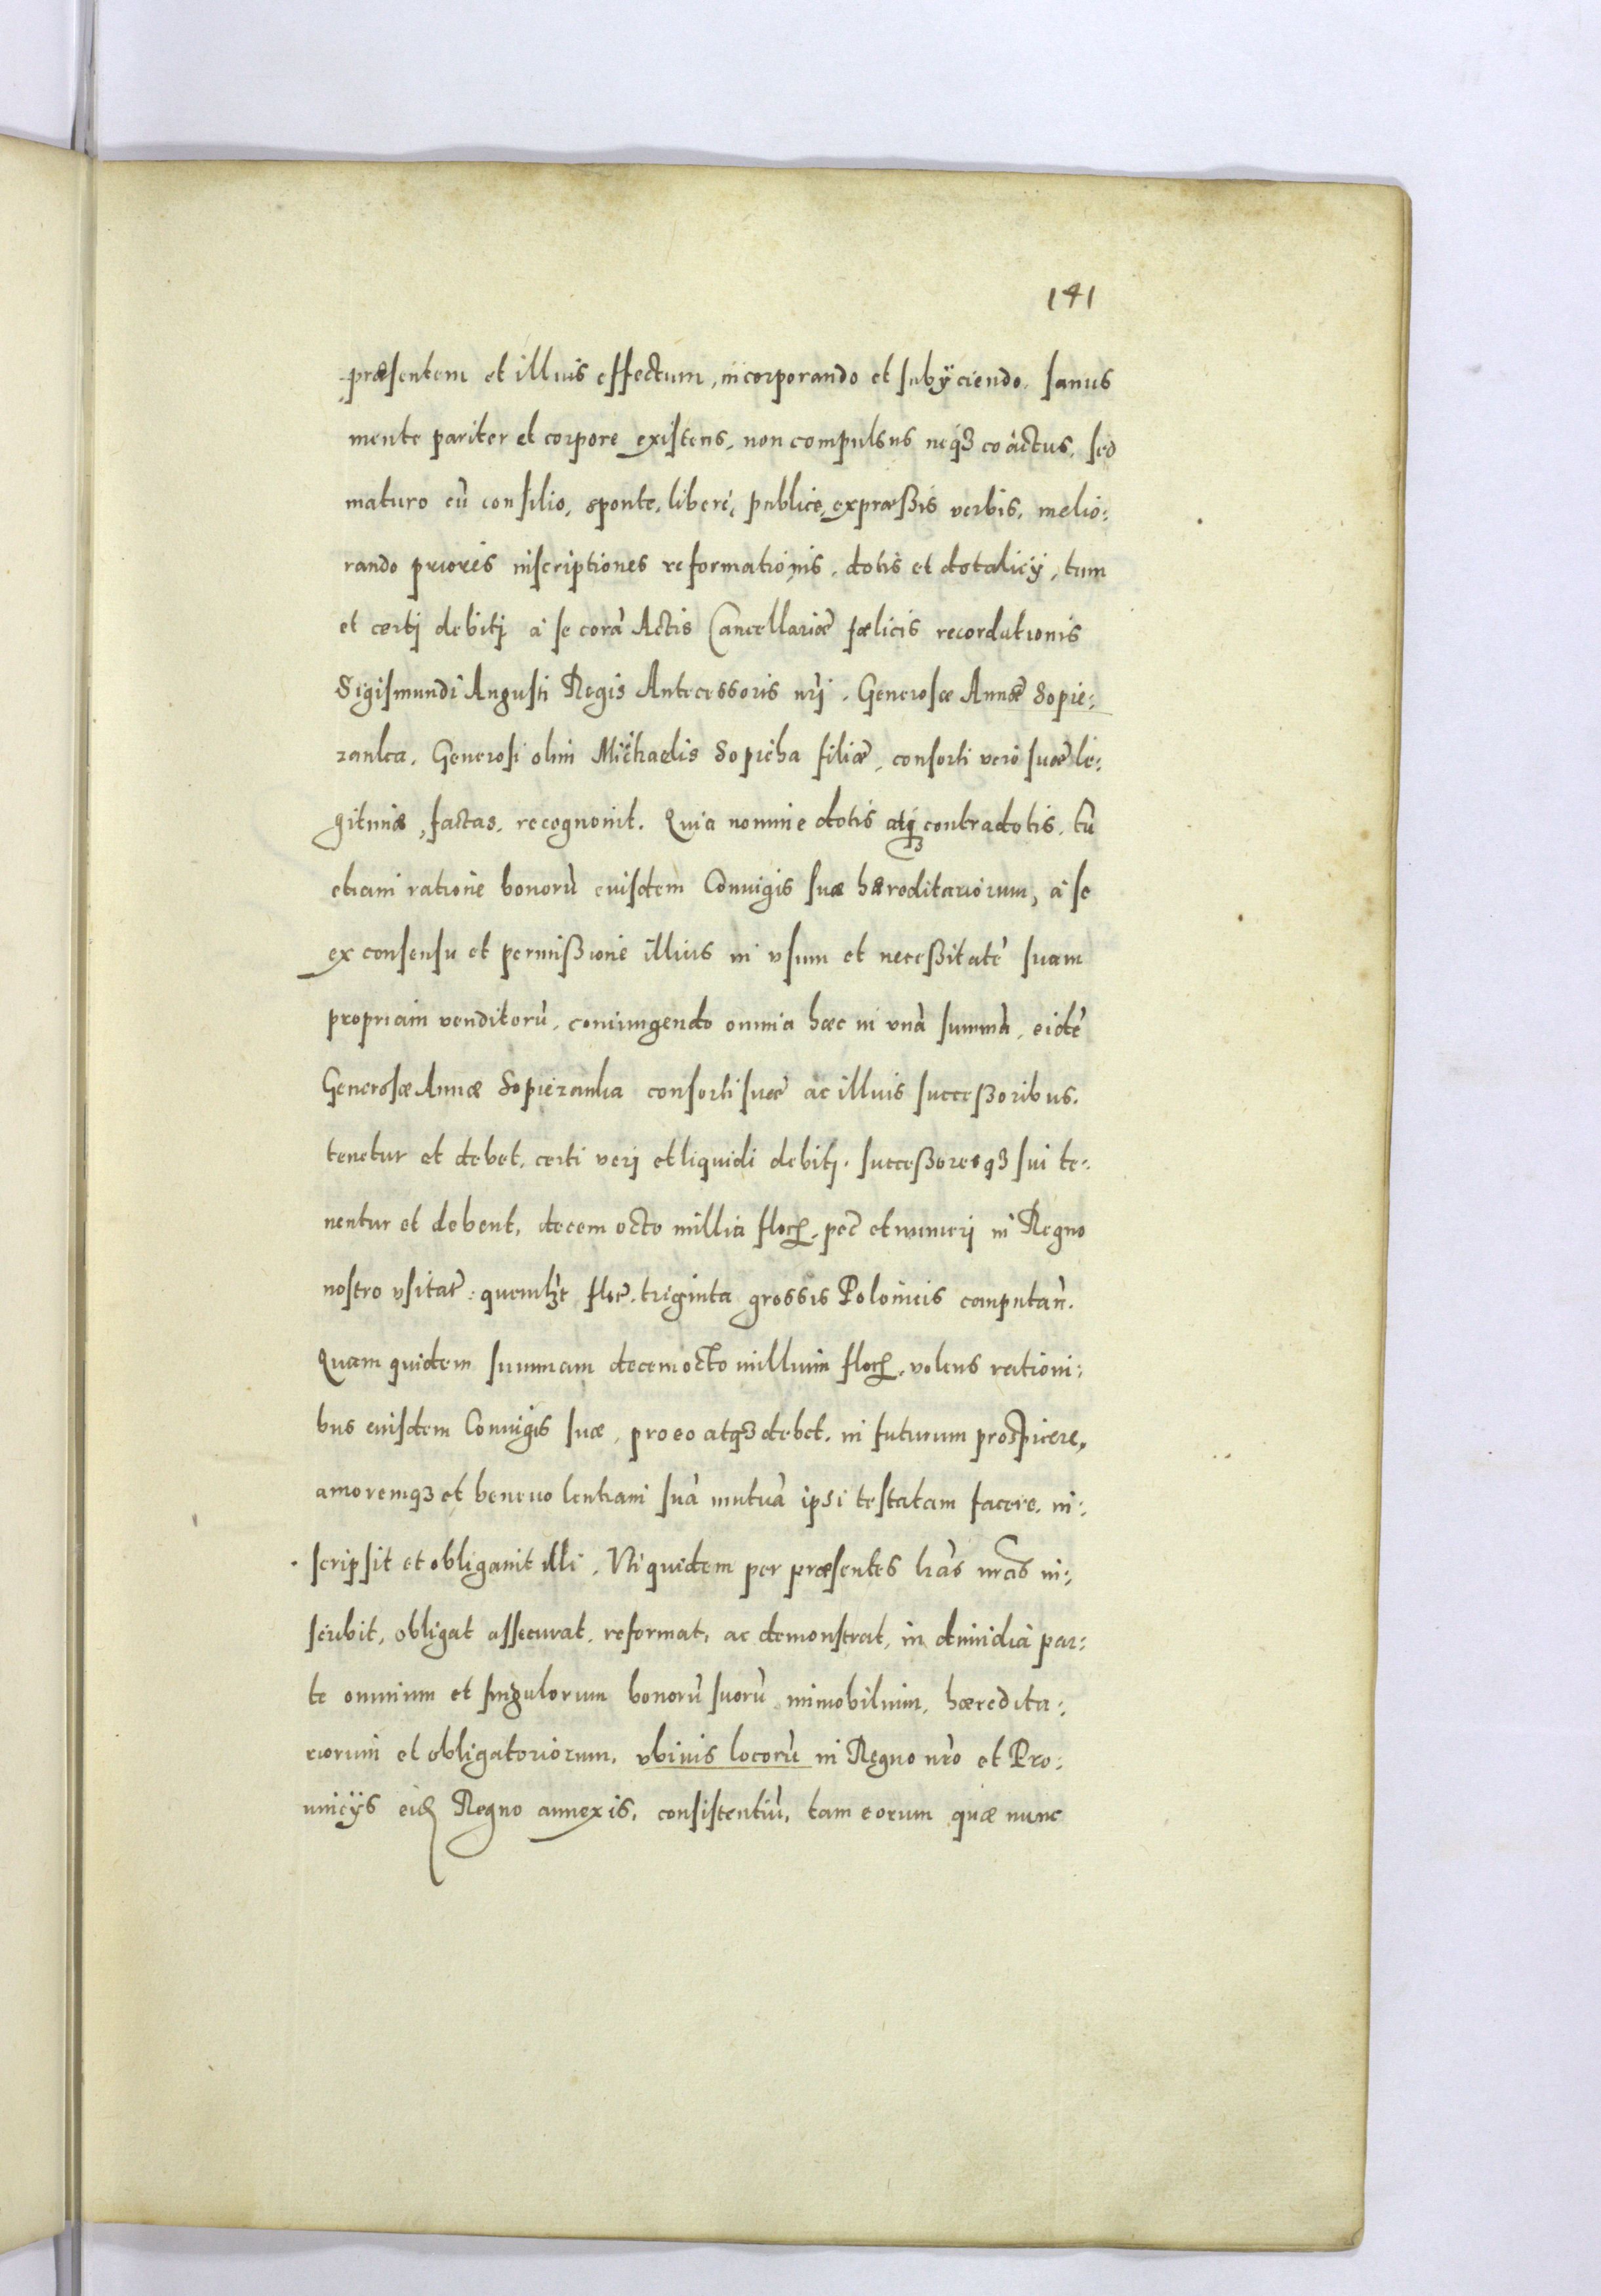 141
præsentem et illius effectum, incorporando et subÿciendo. sanus
mente pariter et corpore existens, non compulsus neqꝫ coáctus, sed
maturo cū consilio, sponte, liberè, publice, expræßis verbis, melio:
rando priores inscriptiones reformationis, dotis et dotalicÿ, tum
et certj debitj à se corā Actis Cancellariæ fælicis recordationis
Sigismundi Augusti Regis Antecessoris nrj. Generosæ Annæ Sopie:
zanka, Generosi olim Michaelis Sopieha filiæ, consorti vero suæ le:
gitimæ, factas, recognouit. Quia nomine dotis atqꝫ contradotis, tū
etiam ratione bonorū eiusdem Coniugis suæ hæreditariorum, à se
ex consensu et permißione illius in vsum et neceßitatē suam
propriam venditorū, coniungendo omnia hæc in vnā summā, eidē
Generosæ Annæ Sopiezanka consorti suæ ac illius succeßoribus,
tenetur et debet, certi verj et liquidi debitj, succeßoresqꝫ sui te:
nentur et debent, decem octo millia floꝝ, pec̄ et numeri in Regno
nostro vsitat̄: quemlꝫt flor̄. triginta grossis Polonicis computan̄.
Quam quidem summam decemocto millium floꝝ, volens rationi:
bus eiusdem Coniugis suæ, pro eo atqꝫ debet, in futurum prospicere,
amoremqꝫ et beneuolentiam suā mutuā ipsi testatam facere, in:
scripsit et obligauit illi. Vti quidem per præsentes lrās nrās in:
scribit, obligat assecurat, reformat, ac demonstrat, in dimidiā par:
te omnium et singulorum bonorū suorū immobilium, hæredita:
riorum et obligatoriorum, vbiuis locorū in Regno nrō et Pro:
uincÿs eidꝫ Regno annexis, consistentiū, tam eorum quæ nunc